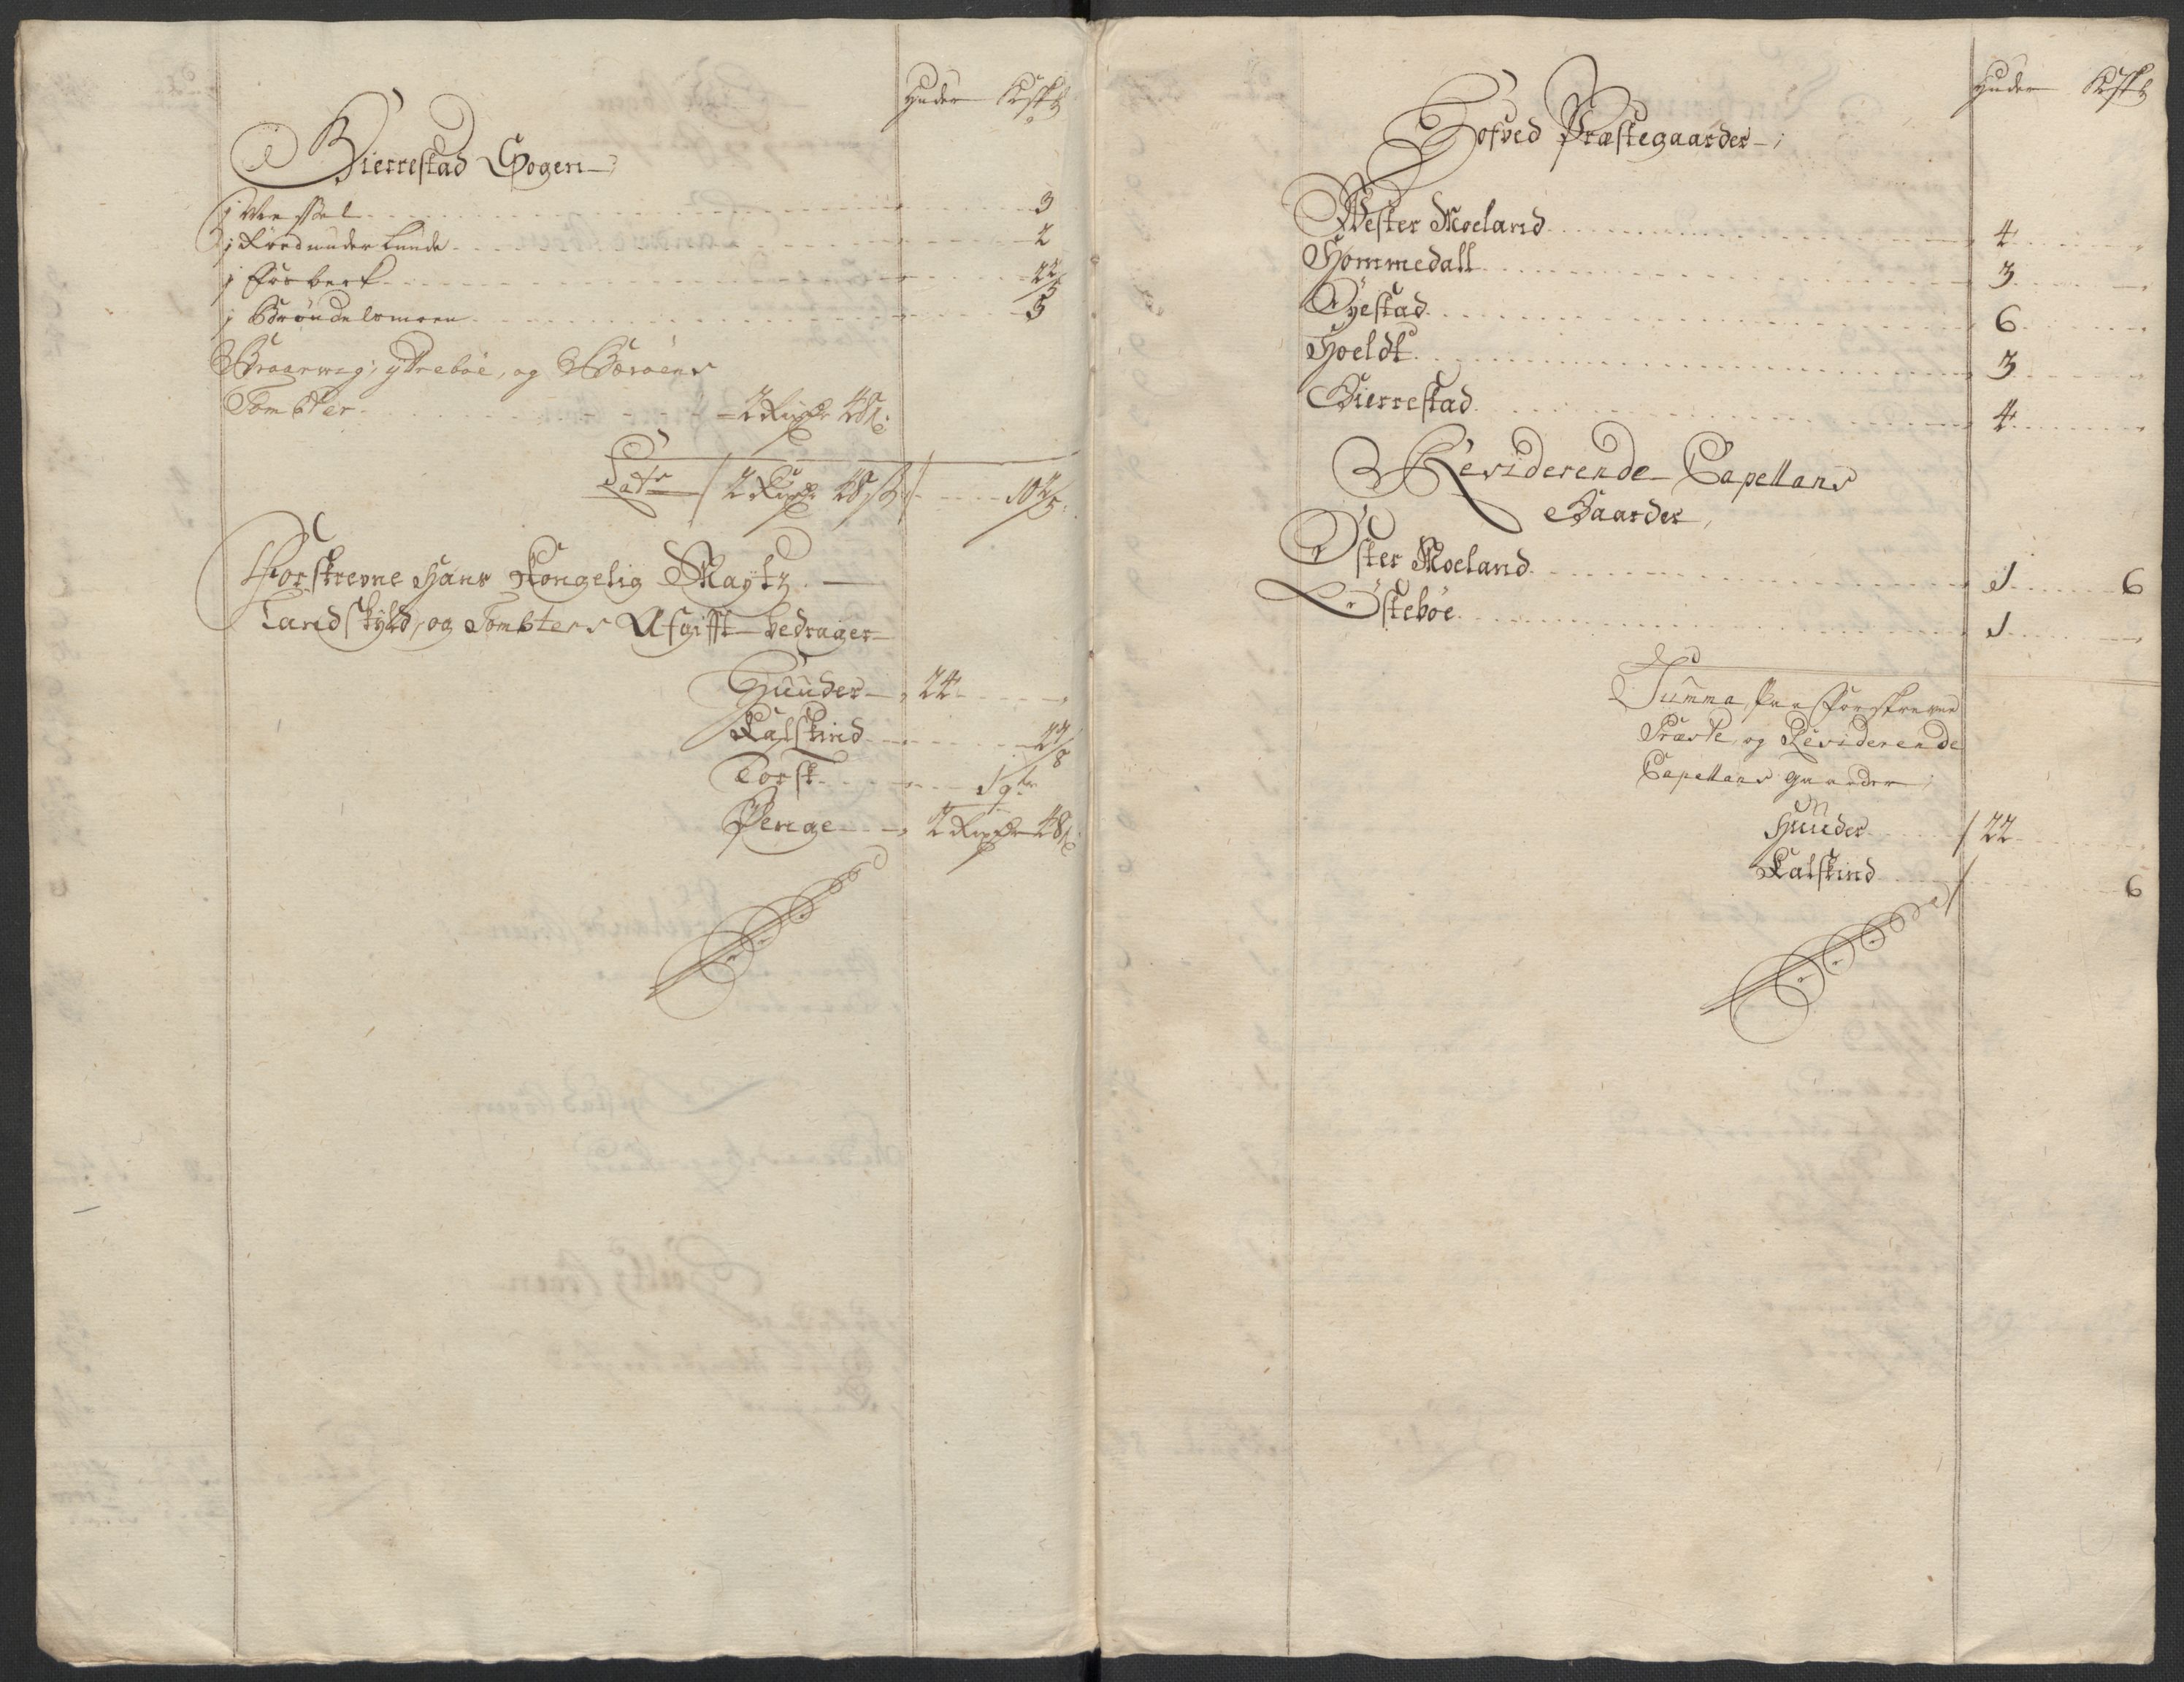 Huder Kalfsk:
Bierrestad Sogen
j Messel 3
j Röed under Lunde 2
j Forberk 2 2/5
j Bröndelsmoen 3
Braarvig, ydreböe, og Boröens
Tombter 2 Rixdr 48 s:
Lat: 2 Rixdr 48 s: 10 2/5:
Forskrevne Hans Kongelig Maytz
Landskyld, og Tombters Afgifft bedrager
Huuder 24
Kalfskind 27/8
Torsk 1 qtr
Penge 2 Rixdr 48 s:
Huder Kalfsk:
Hofved Præstegaarder;
Wester Moeland 4
Hommedall 3
Öyestad 6
Hoeldt 3
Bierrestad 4
Residerende Capellans
Gaarder,
Öster Moeland 1 6
Östeböe 1
Summa Paa Forskrevne
Præste, og Residerende
Capellans gaarder;
Huuder 22
Kalfskind 6